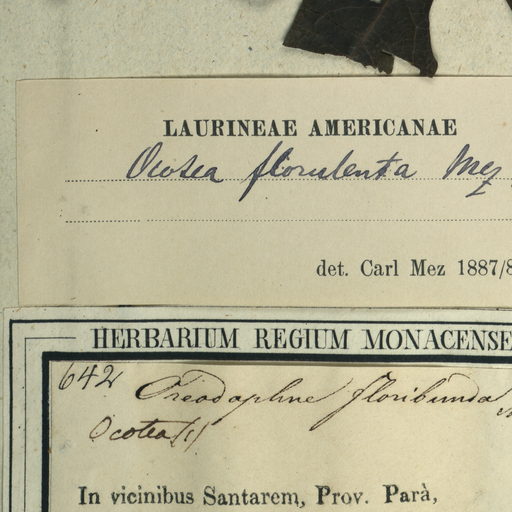 LAURINEAE AMERICANAE
Ocotea florulenta Mez
det. Carl Mez 1887/8
HERBARIUM REGIUM MONACENSE
642 Oreodaphne floribunda
Ocotea (1)
In vicinibus Santarem, Prov. Parà,